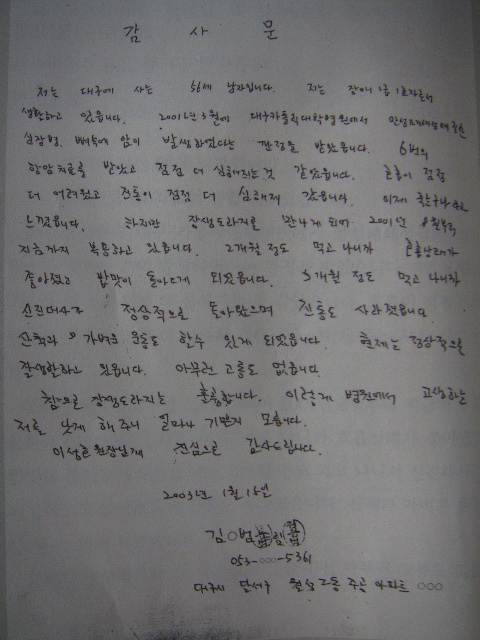 감 사 문
저는 대구에 사는 56세 남자입니다. 저는 장애 1급 1호자로서
생활하고 있읍니다. 2001년 3월에 대구카톨릭대학병원에서
심장병, 뼈속에 암이 발생하였다는 판정을 받았읍니다. 6번의
항암치료를 받았고 점점 더 심해지는것 같았읍니다. 호흡이 점점
더 어려웠고 진통이 점점 더 심해져 갔읍니다. 이제 죽는구나 하고
느꼈읍니다. 하지만 장생도라지를 만나게 되어 2001년 8월부터
지금까지 복용하고 있읍니다. 2개월 정도 먹고 나니까 호흡난에가
좋아졌고 밥맛이 돌아오게 되었읍니다. 5개월 정도 먹고 나니까
신진대사가 정상적으로 돌아왔으며 진통도 사라졌읍니다
산책과 가벼운 운동도 할수 있게 되었읍니다. 현재는 정상적으로
잘생활하고 있읍니다. 아무런 고통도 없읍니다.
참으로 장생도라지는 훌륭합니다. 이렇게 병원에서 고생하는
저를 낫게 해 주니 얼마나 기쁜지 모릅니다.
이성호 원장님께 진심으로 감사드립니다.
2003년 1월 15일
김○범
053-○○○-5361
대구시 달서구 월성2동 주공 아파트 ○○○